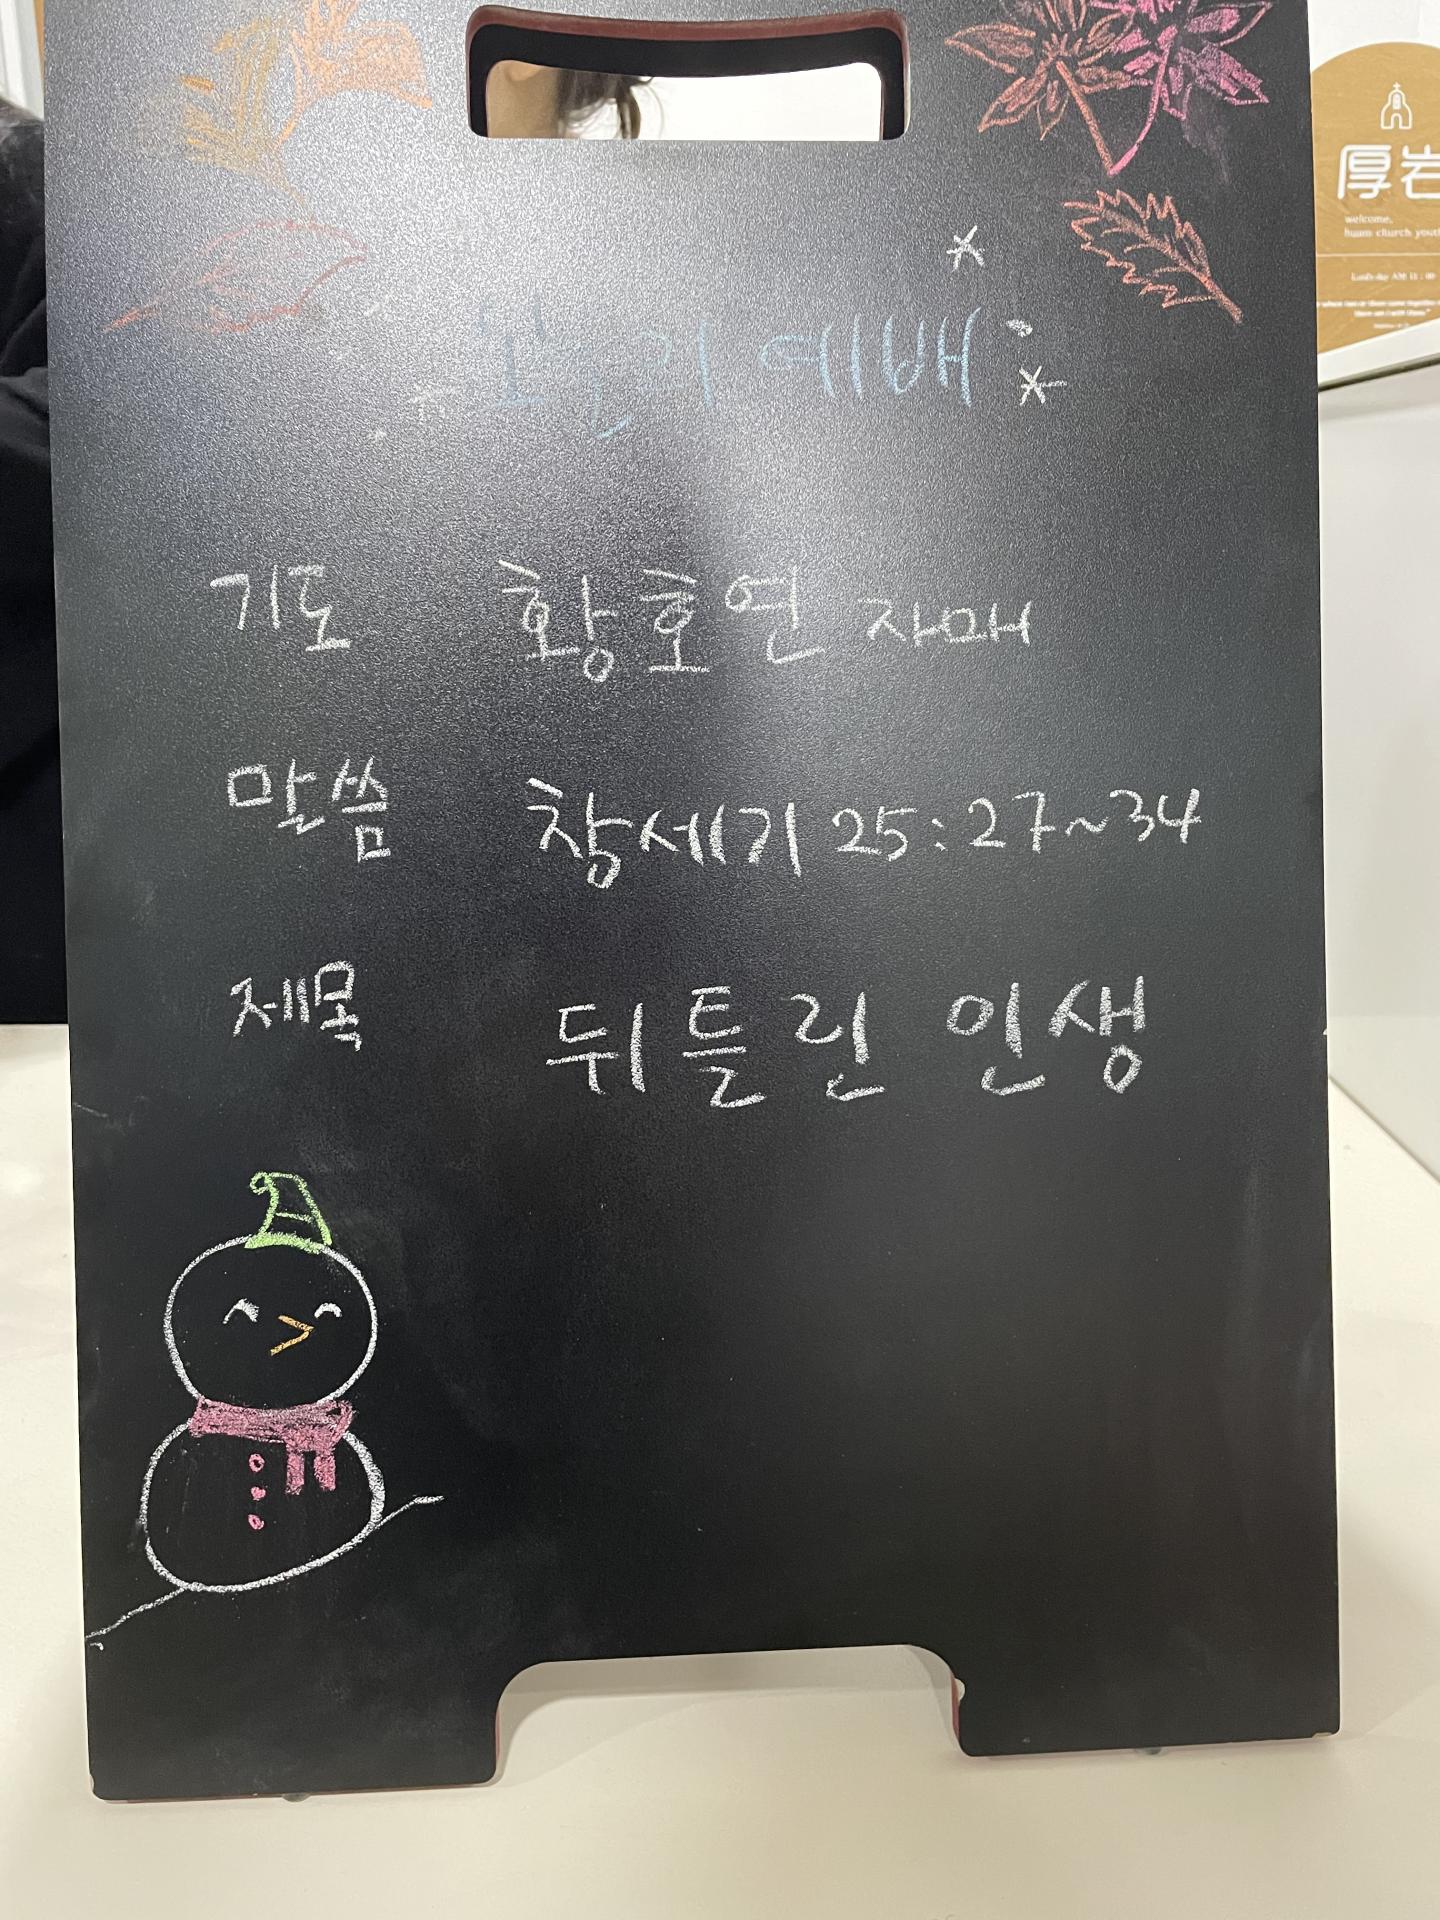 예배
기도 황호연 자매
말씀 창세기 25:27~34
제목 뒤틀린 인생
厚岩
welcome,
huam church youth
Lord's day AM 11 : 00